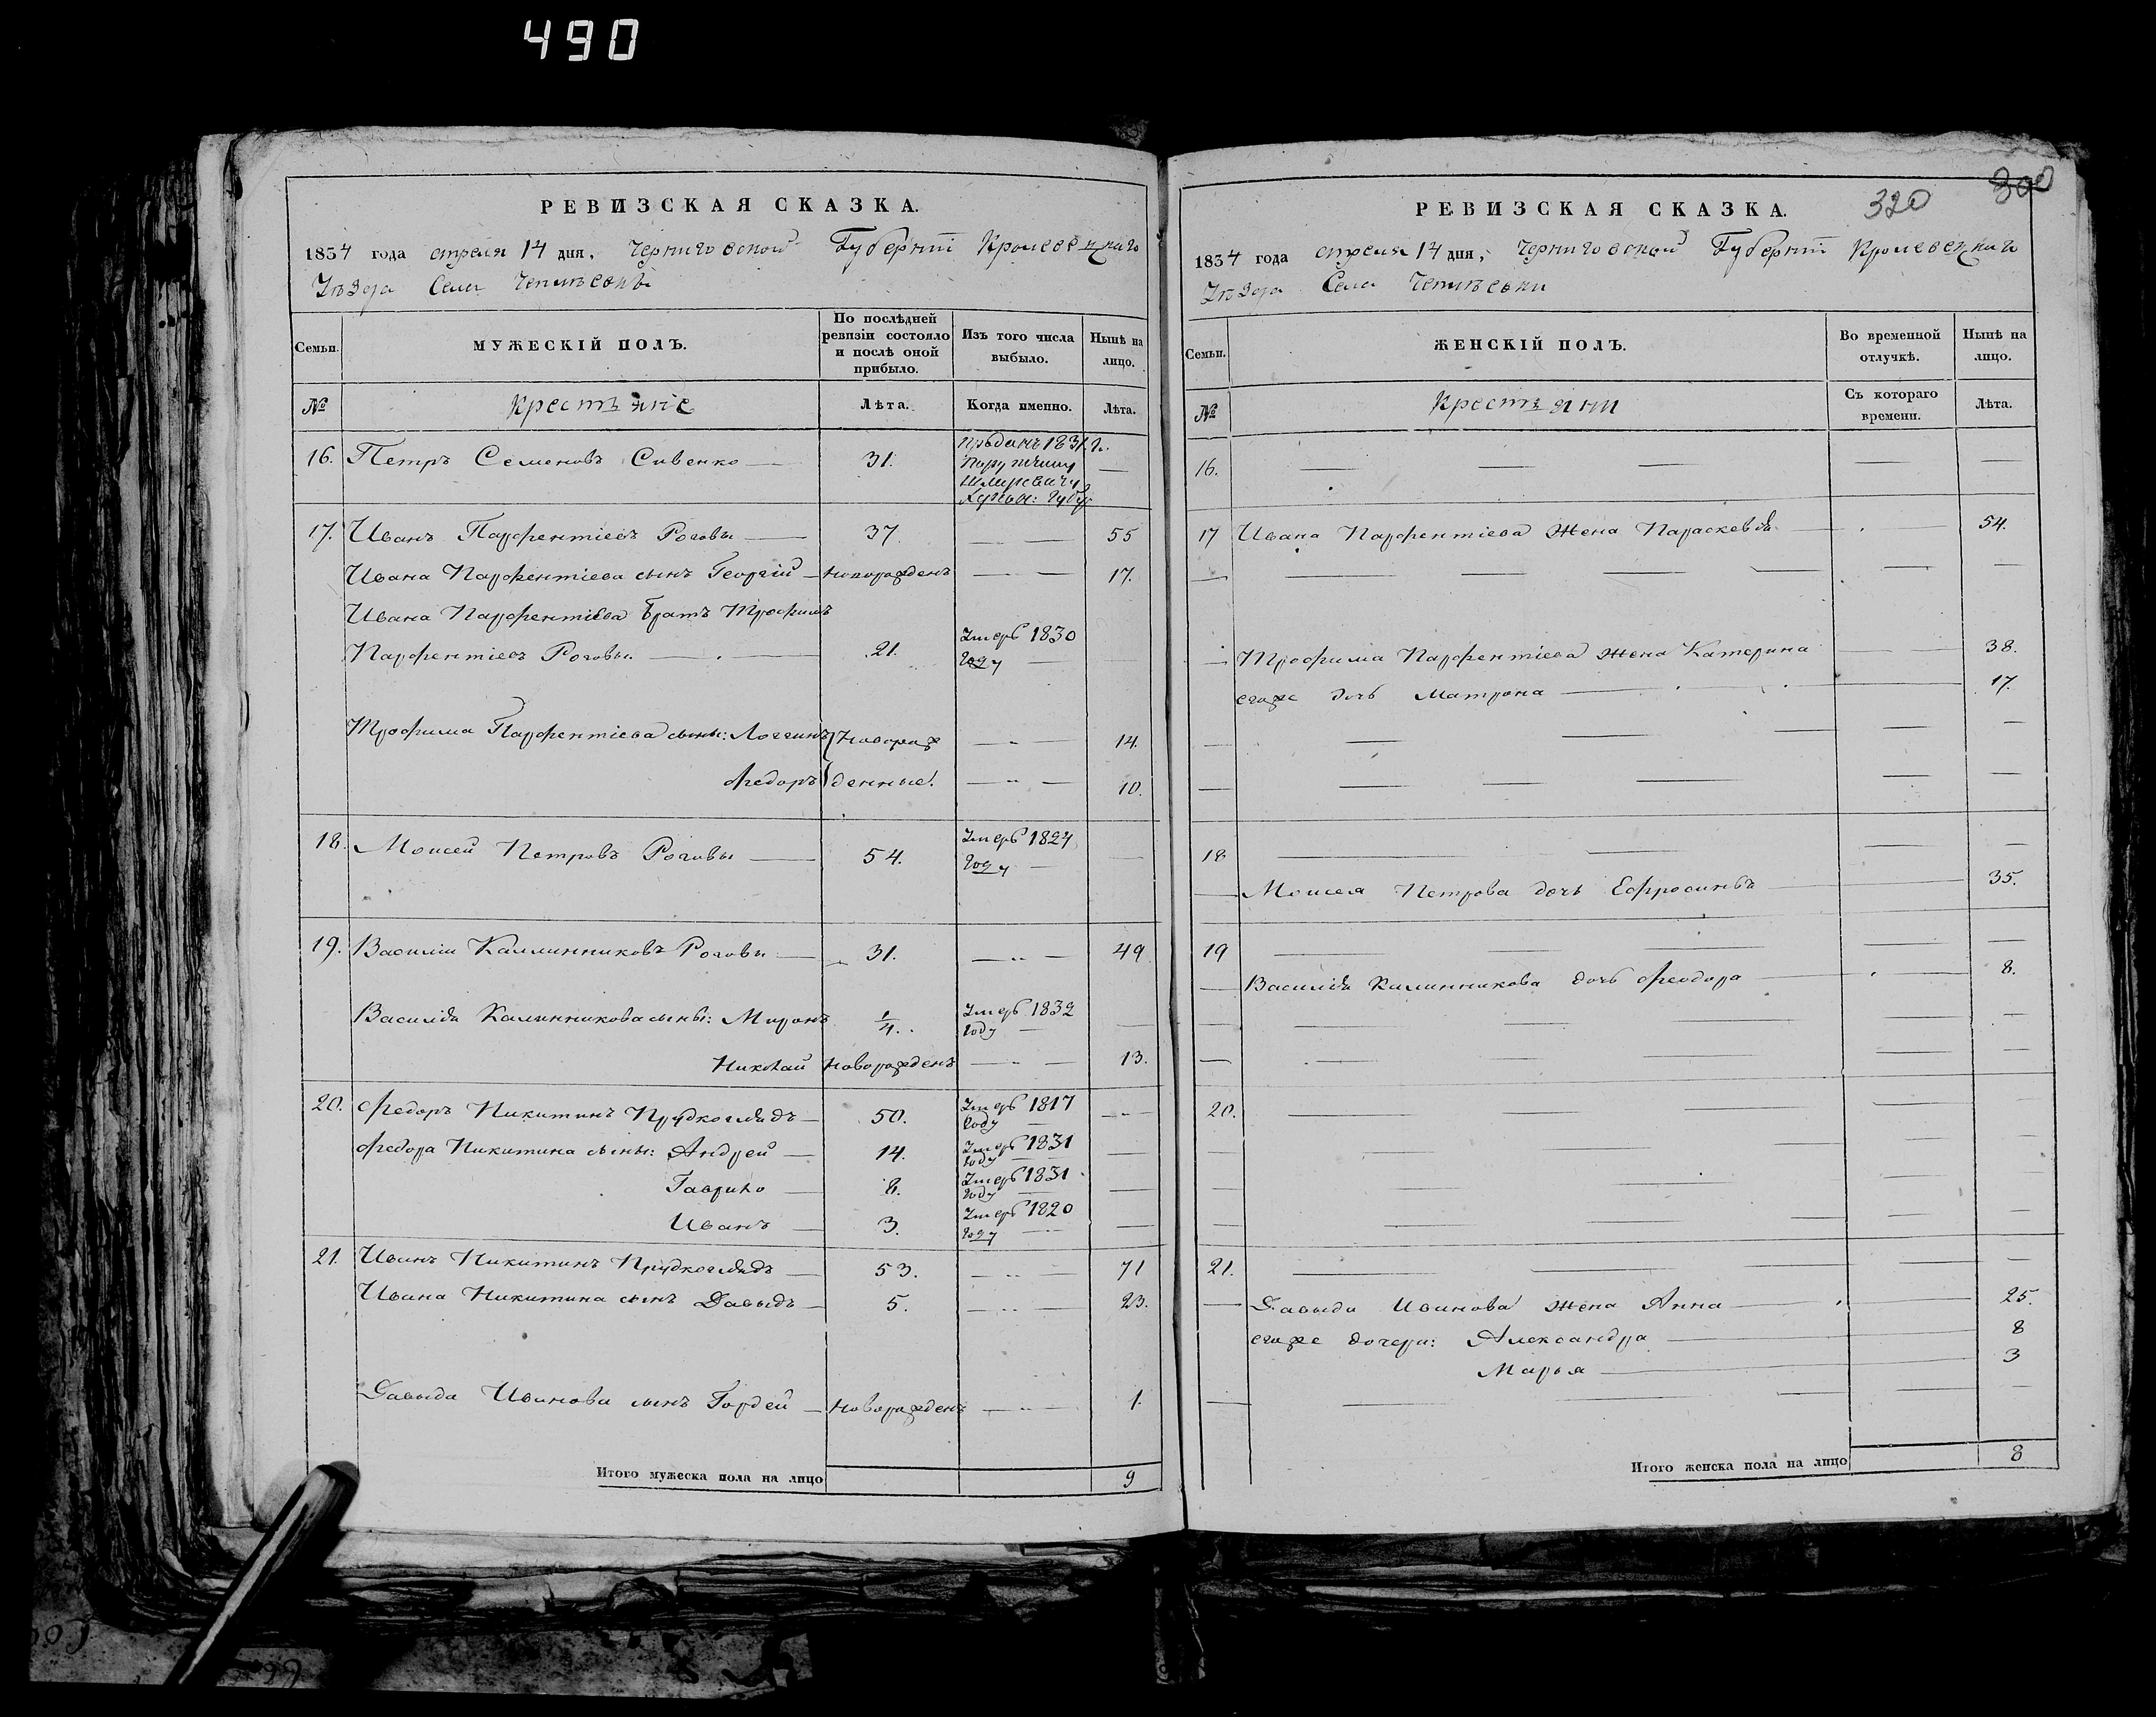 490
РЕВИЗСКАЯ СКАЗКА.
1834 года апреля 14 дня, Черниговской Губерніи Кролевецкаго
Уѣзда Села
Семьи.
МУЖЕСКІЙ ПОЛЪ.
По послѣдней ревизіи состояло и послѣ оной прибыло.
Изъ того числа выбыло.
Нынѣ на лицо.
№
Крестьяне
Лѣта.
Когда именно.
Лѣта.
16. Петръ Семеновъ Сивенко — 31. Проданъ 1831 г. —
17. Иванъ Парфентіевъ Роговы — 37. — 55
Ивана Парфентіева сынъ Георгій — новорожденъ — 17.
Ивана Парфентіева братъ Трофимъ
Парфентіевъ Роговы. — 21. Умеръ 1830 году —
Трофима Парфентіева сыны: Логгинъ } Новорож — 14.
Федоръ } денные. — 10.
18. Моисей Петровъ Роговы — 54. Умеръ 1824 году —
19. Василіи Каллинниковъ Роговы — 31. — 49
Василія Калинникова сыны: Миронъ 1/4. Умеръ 1832 году —
Николай Новорожденъ — 13.
20. Федоръ Никитинъ Прудкоглядъ — 50. Умеръ 1817 году —
Федора Никитина сыны: Андрей — 14. Умеръ 1831 году —
Гаврило — 8. Умеръ 1831 году —
Иванъ — 3. Умеръ 1820 году —
21. Иванъ Никитинъ Прудкоглядъ — 53. — 71
Ивана Никитина сынъ Давыдъ — 5. — 23.
Давыда Иванова сынъ Гордей — Новорожденъ — 1.
Итого мужеска пола на лицо 9
320 300
РЕВИЗСКАЯ СКАЗКА.
1834 года апреля 14 дня, Черниговской Губерніи Кролевецкаго
Уѣзда Села
Семьи.
ЖЕНСКІЙ ПОЛЪ.
Во временной отлучкѣ.
Нынѣ на лицо.
№
Крестьянки
Съ котораго времени.
Лѣта.
16. —
17 Ивана Парфентіева жена Параскевія — 54.
Трофима Парфентіева жена Катерина — 38.
егоже дочь Матрона — 17.
18 —
Моисея Петрова дочь Ефросинья — 35.
19 —
Василія Калинникова дочь Феодора — 8.
20. —
21. —
Давыда Иванова жена Анна — 25.
егоже дочери: Александра — 8
Марья — 3
Итого женска пола на лицо 8